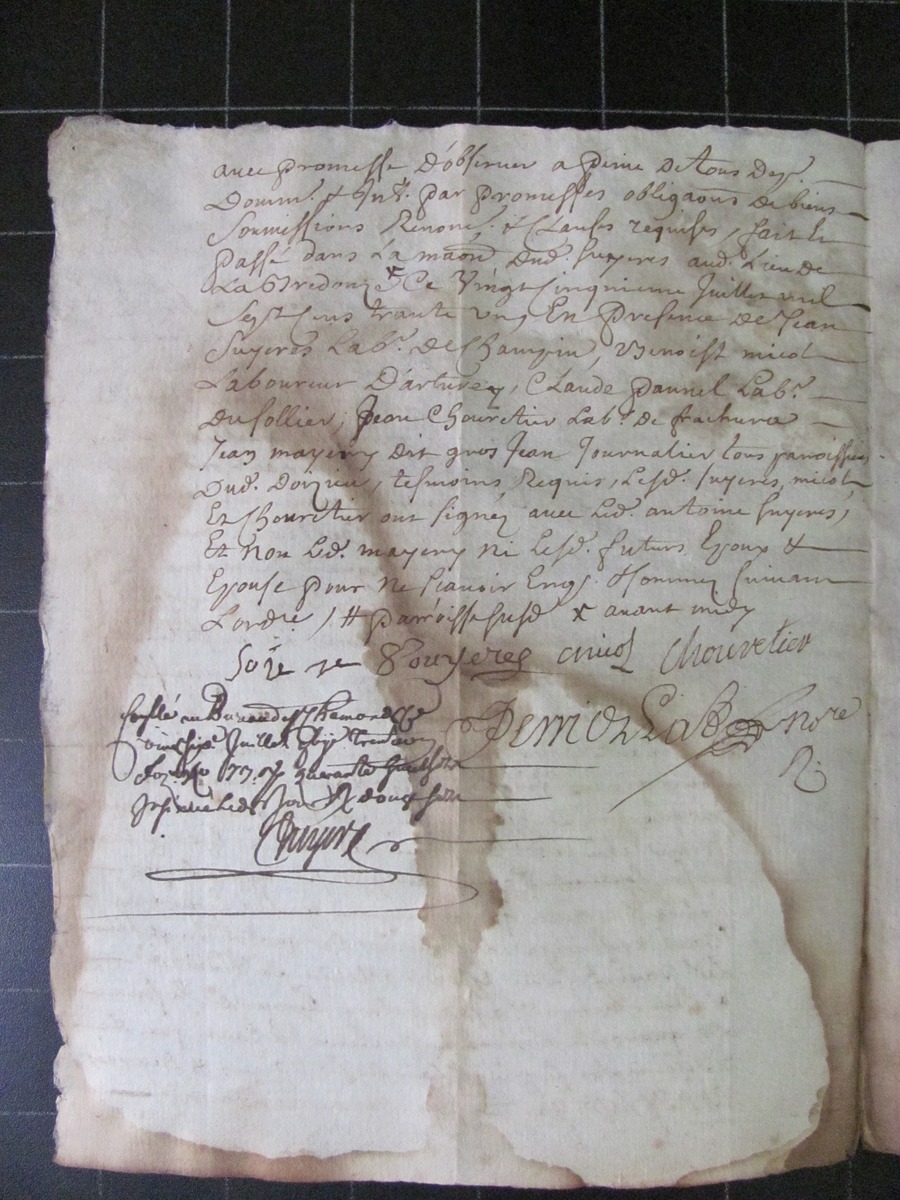 avec promesse d'observer a peine de tous dep.
Domm. & Int. par promesses obligaons de biens
Soumissions Renonc. & Clauses requises, fait et
passé dans La maon dud. Suyeres aud. Lieu de
La Bredony x Ce Vingt Cinquieme Juillet mil
Sept Cens trante Un, En Presence de Jean
Suyeres Labr. de Champin, Benoist micol
Laboureur D'arturey, Claude paunel Labr.
du follier, Jean Chouretier Labr. de frachura
Jean mayery dit gros Jean Journalier tous paroissiens
dud. Doizieu, tesmoins Requis, Lesd. Suyeres, micol
Et Chouretier ont signéz avec Led. antoine Suyeres,
Et Non Led. mayery ni Lesd. futurs Epoux &
Epouse pour ne scavoir Enqs. & sommez suivant
L'ordre / # parroisse susd x avant midy
Souyeres micol Chouretier
nore
Juillet
quarante
Led. Jour douze